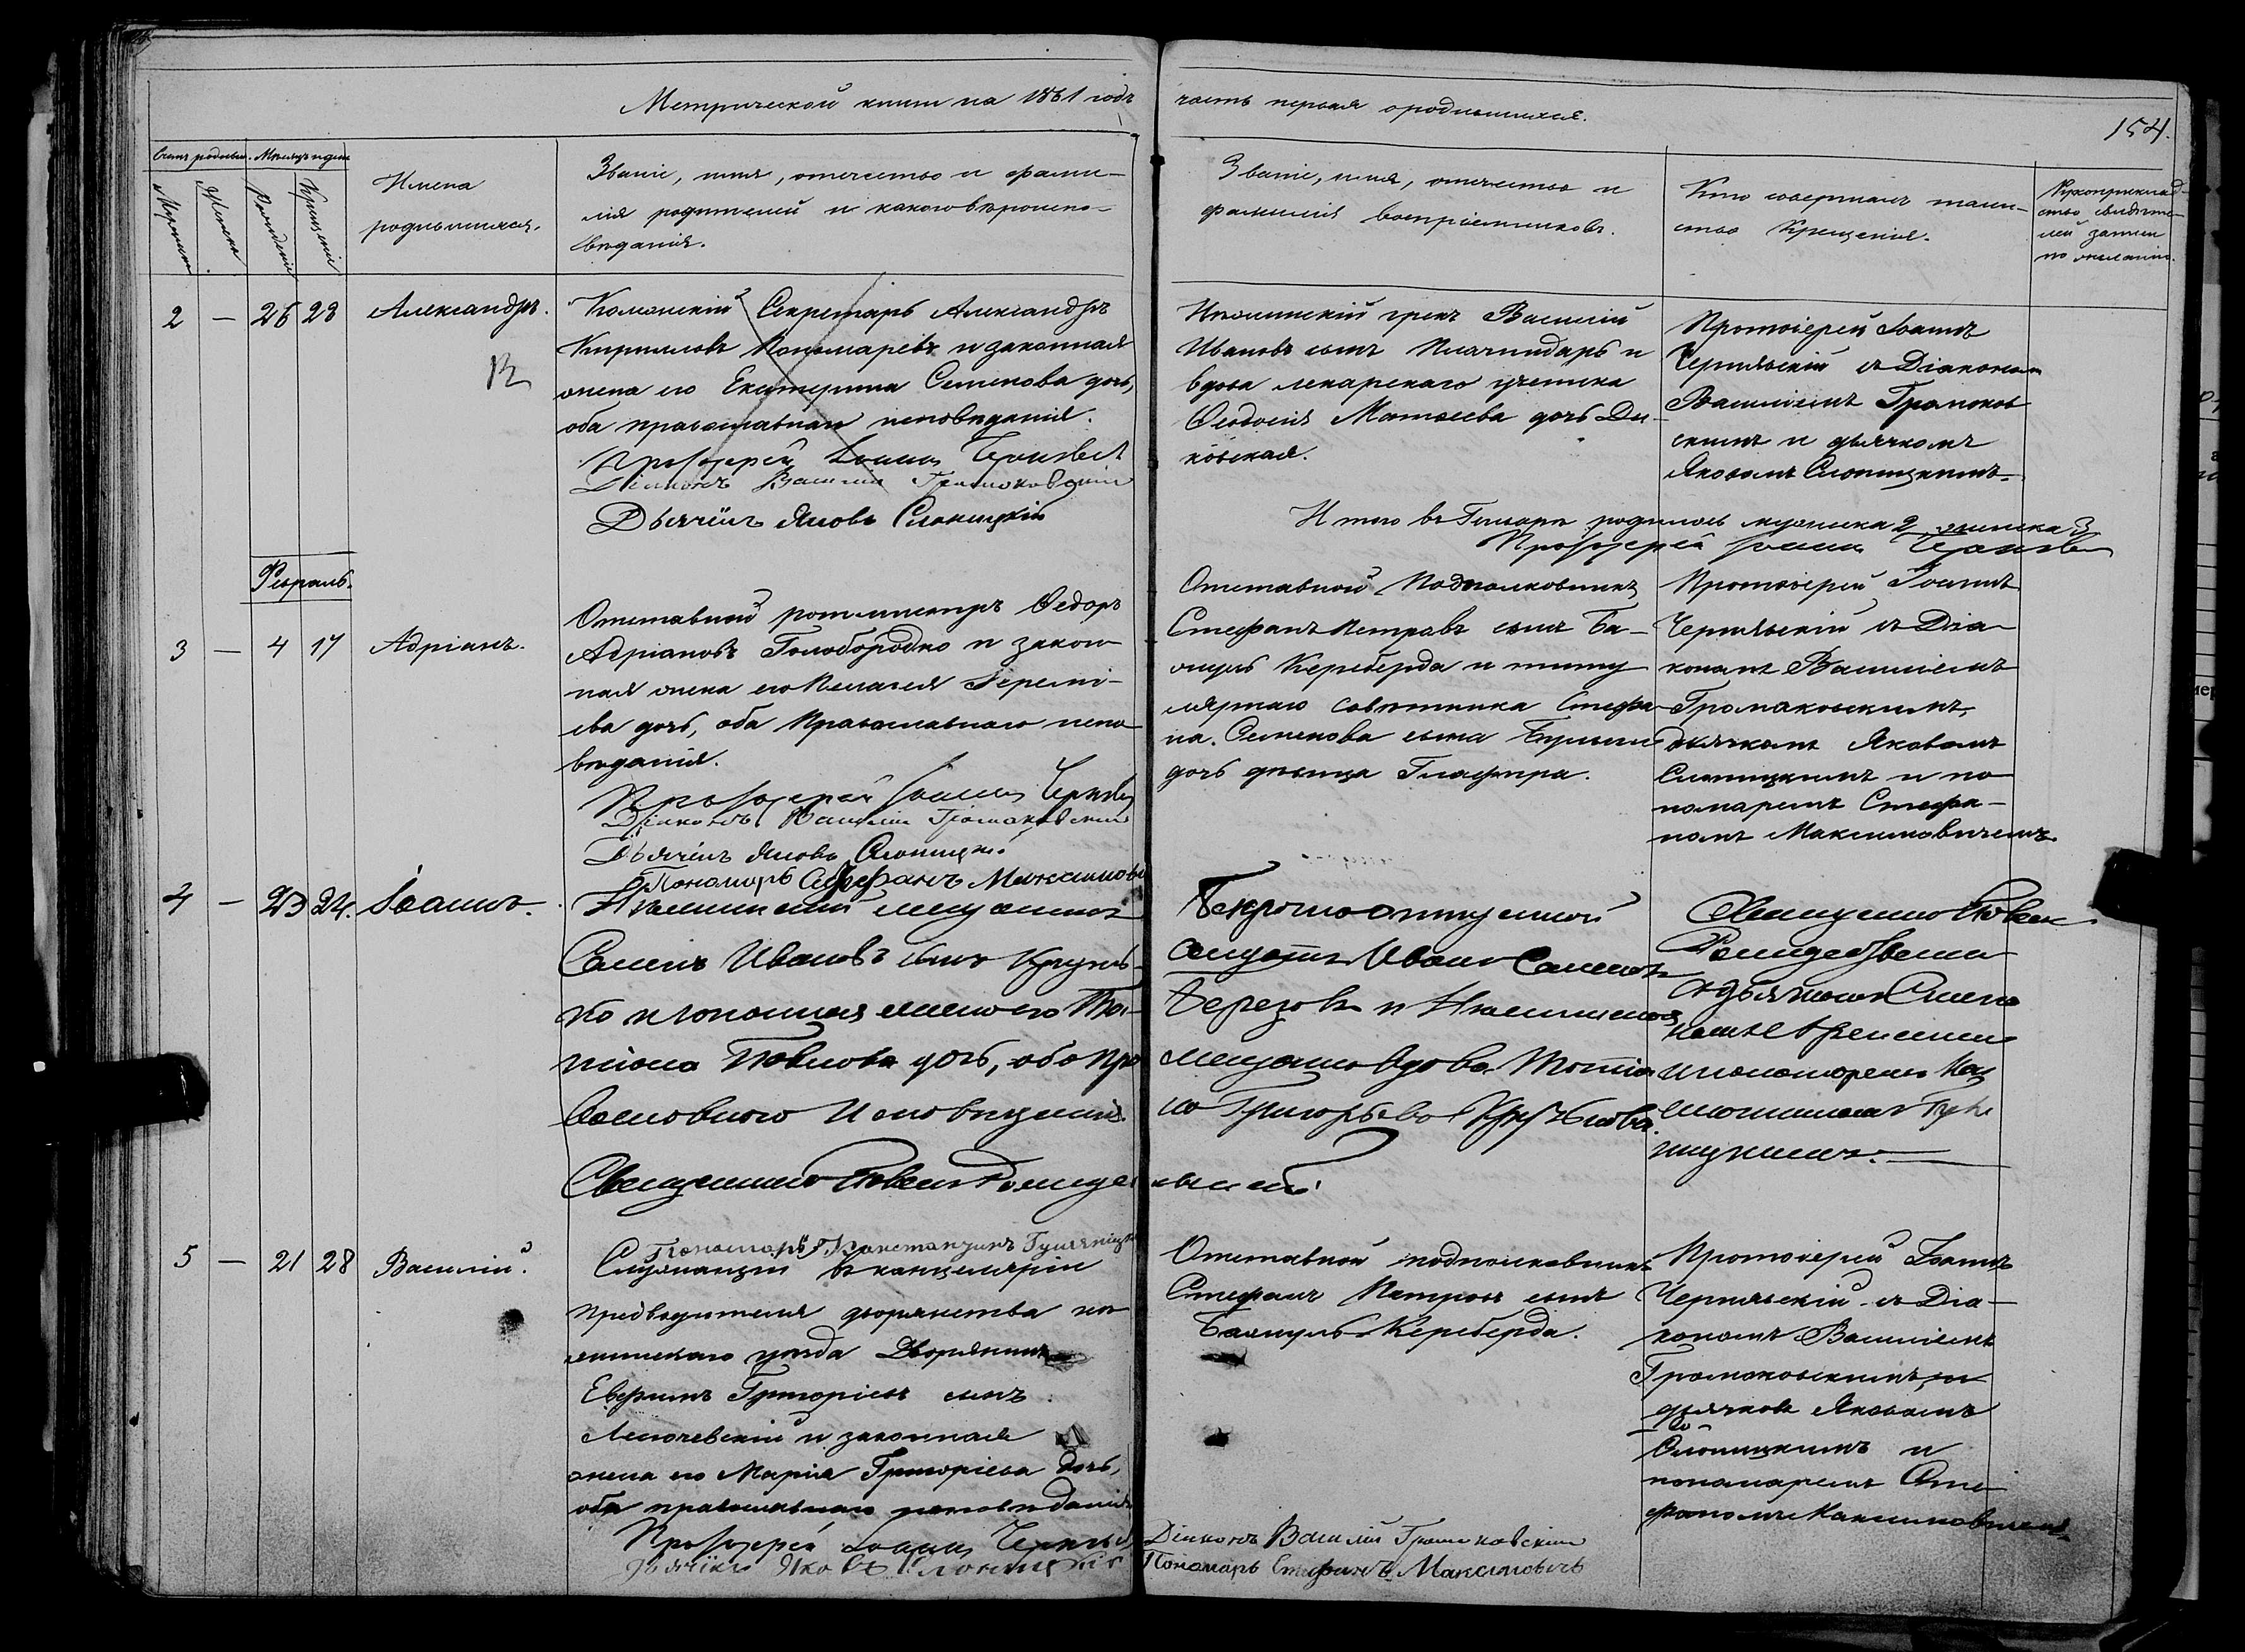 Метрической книги на 1861 годъ
часть первая о родившихся.
154.
Счетъ родовш. Мѣсяцъ и день
Мужескъ
Женска
Рожденія
Крещенія
Имена
родившихся.
Званіе, имя, отчество и фами-
лія родителей и какого вѣроиспо-
вѣданія.
Званіе, имя, отчество и
фамилія воспріемниковъ.
Кто совершалъ таин-
ство Крещенія.
Рукоприклад-
ство свидѣте-
лей записи
по желанію.
2 — 26 28 Александръ.
Секретарь Александръ
Кирилловъ Пономарёвъ и законная
жена его Екатерина Семенова дочь,
оба православнаго исповѣданія.
Протоіерей Іоаннъ Чернявскій
Діаконъ Василій Громаковскій
Дьячёкъ Яковъ Слоницкій
Нѣжинскій грекъ Василій
Ивановъ сынъ и
вдова лекарскаго ученика
Феодосія Матвеева дочь
Протоіерей Іоаннъ
Чернявскій съ Діакономъ
Василіемъ Громаков
скимъ и дьячкомъ
Яковомъ Слоницкимъ.
Итого въ Генварѣ родилось мужеска 2 женска 3
Протоіерей Іоаннъ Чернявскій
Февраль.
3 — 4 17 Адріанъ.
Отставной ротмистръ Федоръ
Адріановъ Голобородко и закон
ная жена его Пелагея Іеремі-
ева дочь, оба Православнаго испо
вѣданія.
Протоіерей Іоаннъ Чернявскій
Діаконъ Василій Громаковскій
Дьячёкъ Яковъ Слоницкій
Пономарь Стефанъ Максимовичъ
Отставной Подполковникъ
Стефанъ Петровъ сынъ Ба-
жулъ Кереберда и титу
лярнаго совѣтника Стефа
на Семенова сына
дочь дѣвица Глафира.
Протоіерей Іоаннъ
Чернявскій съ Діа-
кономъ Василіемъ
Громаковскимъ,
дьячкомъ Яковомъ
Слоницкимъ и по
номаремъ Стефа-
номъ Максимовичемъ.
4 — 23 24. Іоаннъ.
Нѣжинскій мещанинъ
Ивановъ сынъ
ко и законная жена его Та-
тіана Павлова дочь, оба пра
вославнаго Исповѣданія.
Священникъ Павелъ
Пономарь Константинъ
Безсрочноотпускной
солдатъ Иванъ
Березовъ и Нѣжинская
мещанка вдова Татіа
на Григорьева
Священникъ Павелъ
съ дьячкомъ
и пономаремъ Кон
стантиномъ
5 — 21 28 Василій.
Служащій въ канцеляріи
предводителя дворянства нѣ
жинскаго уѣзда Дворянинъ
Евфимъ Григоріевъ сынъ
и законная
жена его Марія Григоріева дочь,
оба православнаго исповѣданія
Протоіерей Іоаннъ Чернявскій
Дьячёкъ Яковъ Слоницкій
Отставной подполковникъ
Стефанъ Петровъ сынъ
Бажулъ-Кереберда.
Діаконъ Василій Громаковскій
Пономарь Стефанъ Максимовичъ
Протоіерей Іоаннъ
Чернявскій съ Діа-
кономъ Василіемъ
Громаковскимъ, и
дьячкомъ Яковомъ
Слоницкимъ и
пономаремъ Сте
фаномъ Максимовичемъ